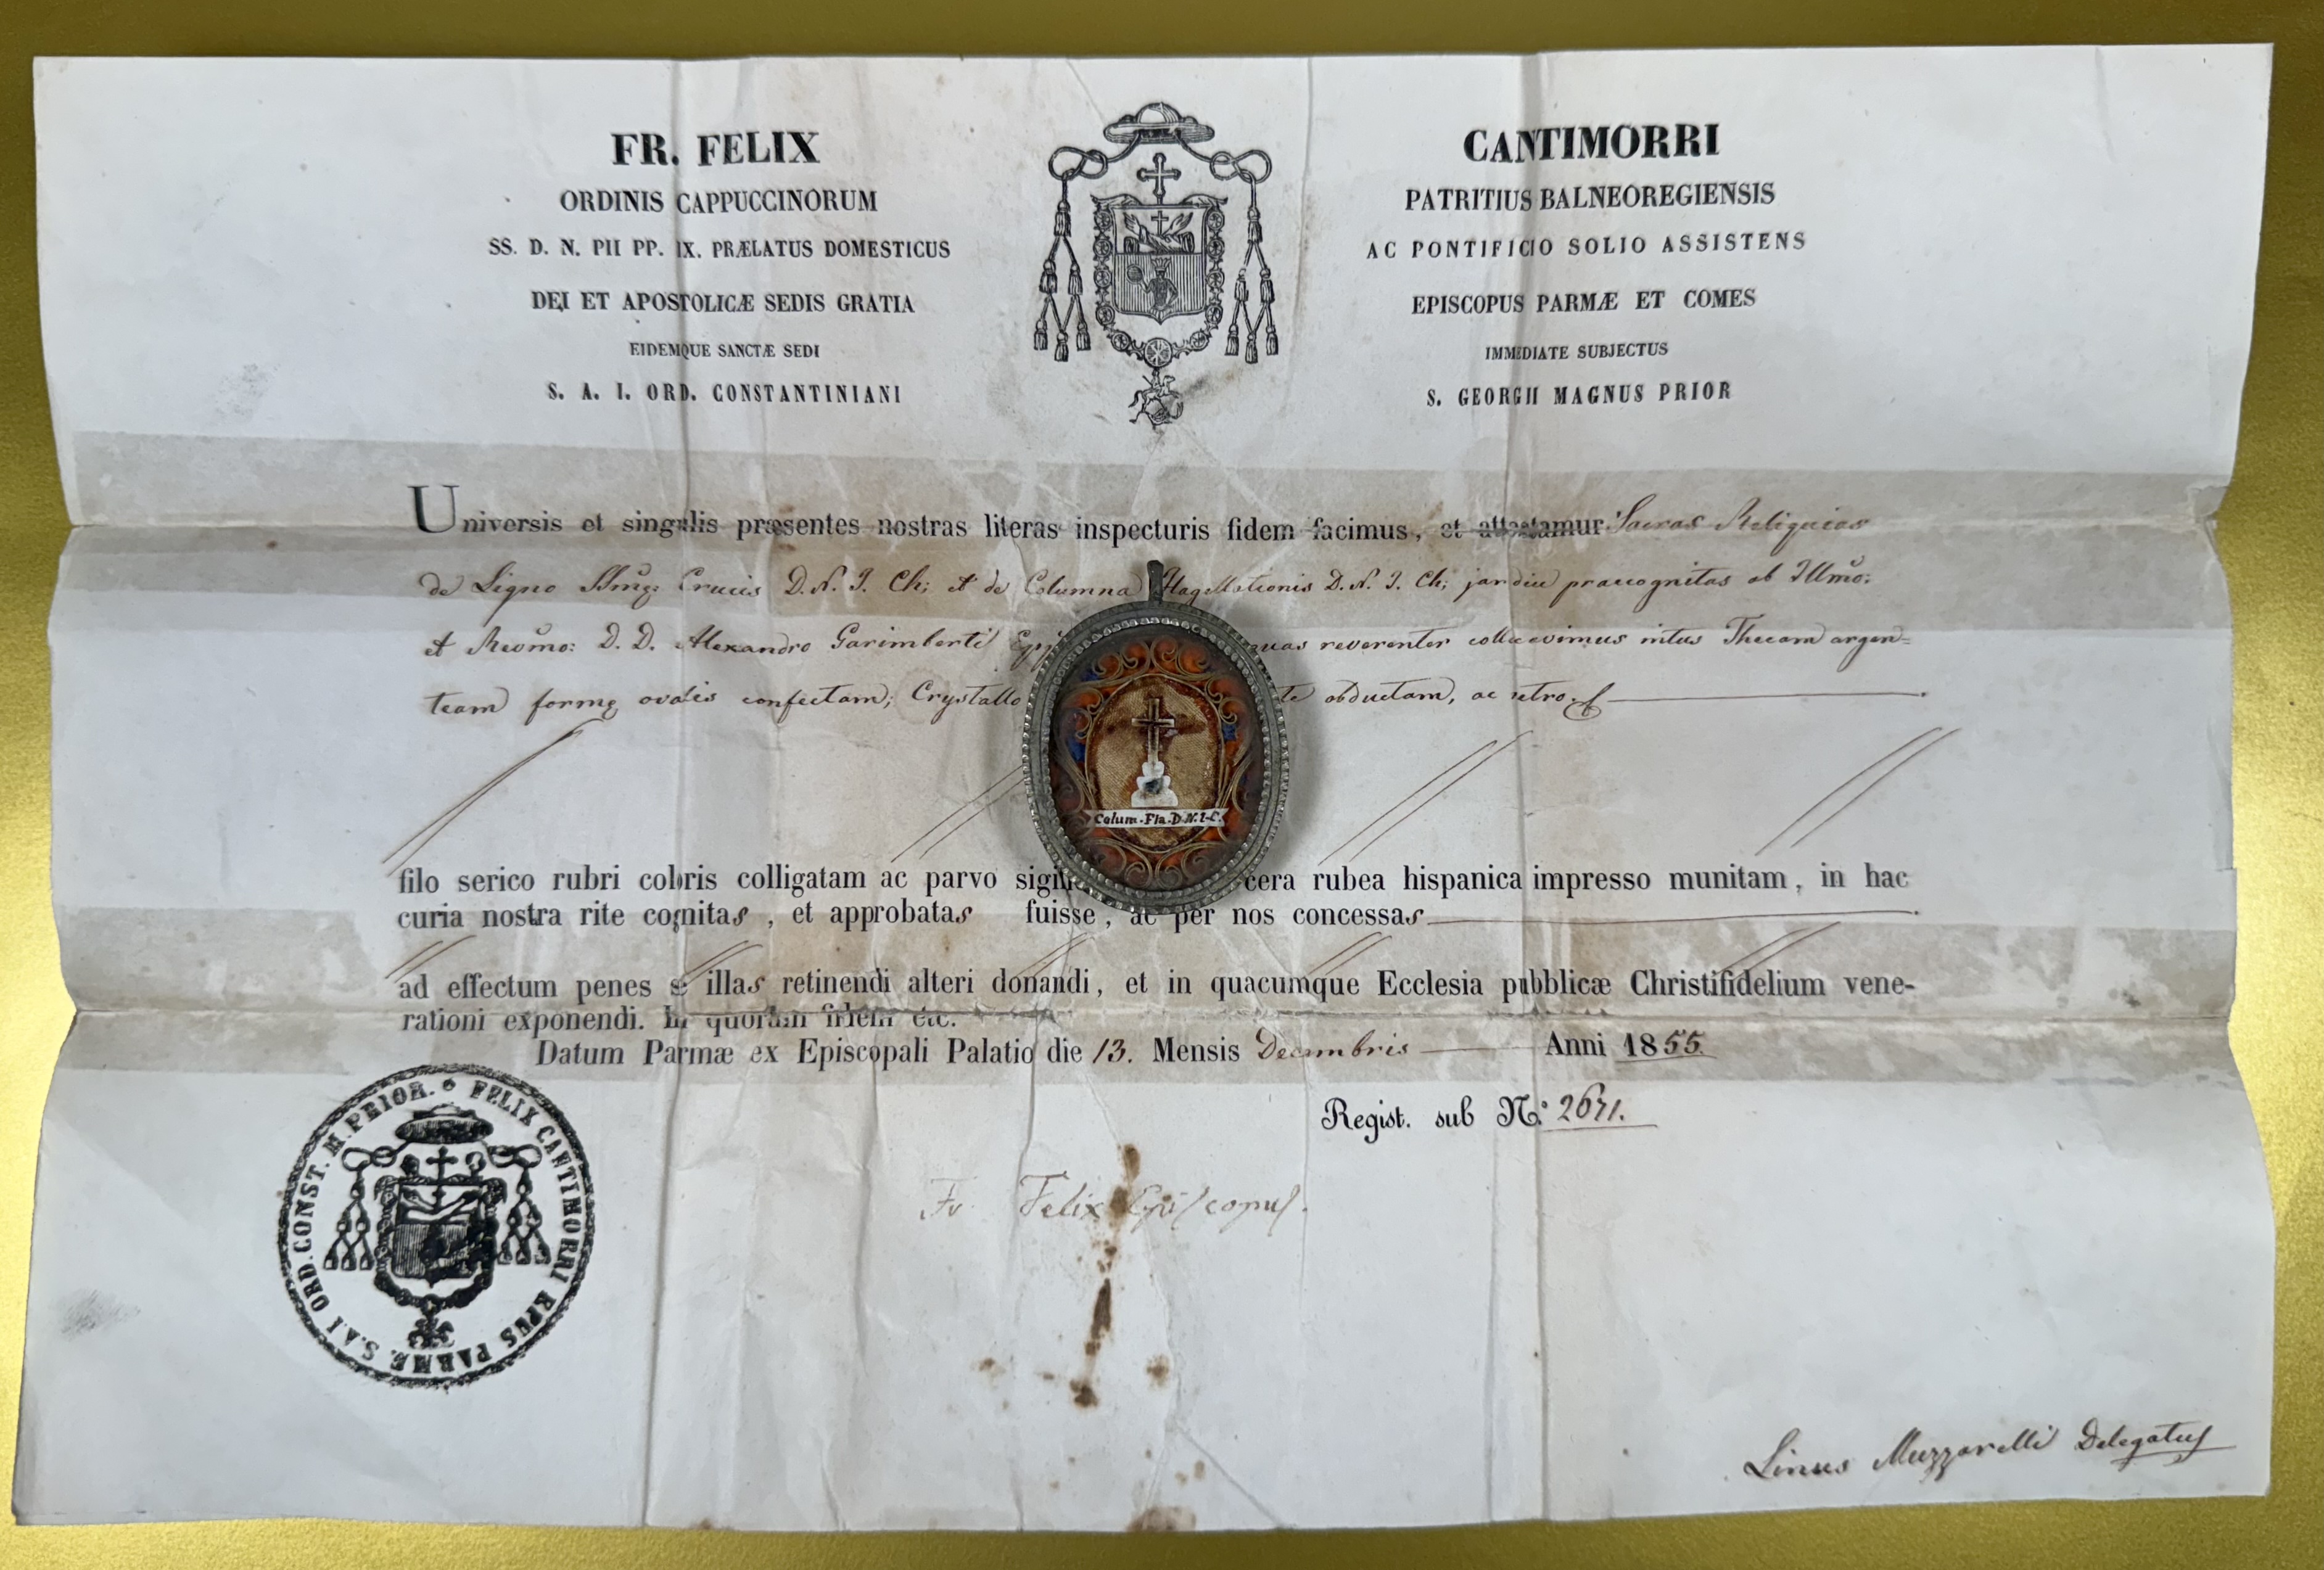 FR. FELIX CANTIMORRI
ORDINIS CAPPUCCINORUM PATRITIUS BALNEOREGIENSIS
SS. D. N. PII PP. IX. PRÆLATUS DOMESTICUS AC PONTIFICIO SOLIO ASSISTENS
DEI ET APOSTOLICÆ SEDIS GRATIA EPISCOPUS PARMÆ ET COMES
EIDEMQUE SANCTÆ SEDI IMMEDIATE SUBJECTUS
S. A. I. ORD. CONSTANTINIANI S. GEORGII MAGNUS PRIOR
Universis et singulis præsentes nostras literas inspecturis fidem facimus, et attestamur Sacras Reliquias
de Ligno SSmę Crucis D. N. J. Ch; et de Columna Flagellationis D. N. J. Ch; jamdiu præcognitas ab Illmo:
et Revmo: D. D. Alexandro Garimberti quas reverenter collocavimus intus Thecam argen=
team formę ovalis confectam; Crystallo obductam, ac retro
Colum. Fla. D. N. I. C.
filo serico rubri coloris colligatam ac parvo cera rubea hispanica impresso munitam, in hac
curia nostra rite cognitas, et approbatas fuisse, ac per nos concessas
ad effectum penes se illas retinendi alteri donandi, et in quacumque Ecclesia pubblicæ Christifidelium vene-
rationi exponendi. In quorum fidem etc.
Datum Parmæ ex Episcopali Palatio die 13. Mensis Decembris Anni 1855.
Regist. sub N.° 2671.
Fr. Felix Episcopus.
FELIX CANTIMORRI EPUS PARMÆ. S.A.I ORD. CONST. M. PRIOR.
Linus Muzzarelli Delegatus